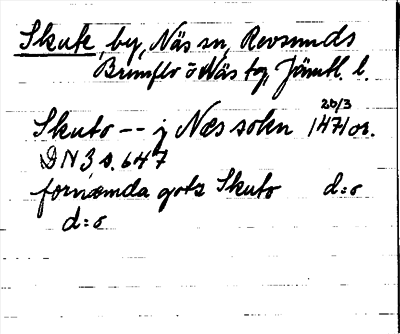 Skute, by, Näs sn, Revsunds
Brunflo o Näs tg, Jämtl. l.
20/3
Skuto -- j Næs sokn 1471 or.
DN 3, s. 647
fornæmda gotz Skuto d:o
d:o